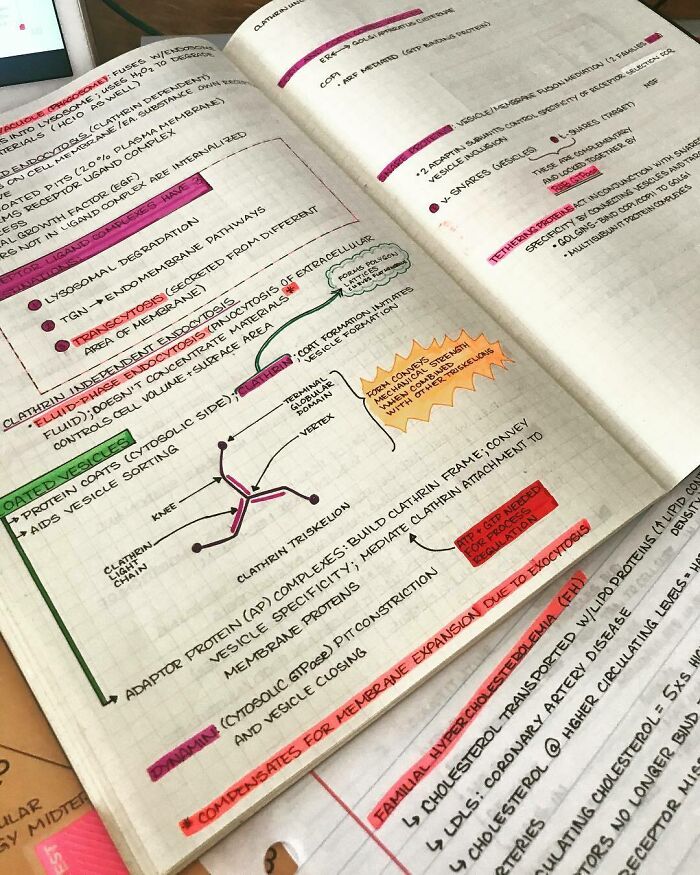 VACUOLE (PHAGOSOME): FUSES W/ENDOSOME
INTO LYSOSOME; USES H2O2 TO DEGRADE
MATERIALS (HClO AS WELL)
ENDOCYTOSIS (CLATHRIN DEPENDENT)
ON CELL MEMBRANE/EA. SUBSTANCE OWN
COATED PITS (2.0% PLASMA MEMBRANE)
RECEPTOR LIGAND COMPLEX
GROWTH FACTOR (EGF)
NOT IN LIGAND COMPLEX ARE INTERNALIZED
LIGAND COMPLEXES HAVE 3
LYSOSOMAL DEGRADATION
TGN → ENDOMEMBRANE PATHWAYS
TRANSCYTOSIS (SECRETED FROM DIFFERENT
AREA OF MEMBRANE)
CLATHRIN INDEPENDENT ENDOCYTOSIS
• FLUID-PHASE ENDOCYTOSIS (PINOCYTOSIS OF EXTRACELLULAR
FLUID); DOESN'T CONCENTRATE MATERIALS *
CONTROLS CELL VOLUME + SURFACE AREA
FORMS POLYGON
LATTICES
OATED VESICLES
→ PROTEIN COATS (CYTOSOLIC SIDE); CLATHRIN; COAT FORMATION INITIATES
VESICLE FORMATION
→ AIDS VESICLE SORTING
TERMINAL
GLOBULAR
DOMAIN
VERTEX
KNEE
CLATHRIN
LIGHT
CHAIN
CLATHRIN TRISKELION
FORM CONVEYS
MECHANICAL STRENGTH
WHEN COMBINED
WITH OTHER TRISKELIONS
ADAPTOR PROTEIN (AP) COMPLEXES: BUILD CLATHRIN FRAME; CONVEY
VESICLE SPECIFICITY; MEDIATE CLATHRIN ATTACHMENT TO
MEMBRANE PROTEINS
ATP + GTP NEEDED
FOR PROCESS
REGULATION
DYNAMIN: (CYTOSOLIC GTPase) PIT CONSTRICTION
AND VESICLE CLOSING
* COMPENSATES FOR MEMBRANE EXPANSION DUE TO EXOCYTOSIS
CLATHRIN
ER ↔ GOLGI APPARATUS CISTERNAE
COPI • ARF MEDIATED (GTP BINDING PROTEIN)
PROTEINS: VESICLE/MEMBRANE FUSION MEDIATION (2 FAMILIES
• 2 ADAPTIN SUBUNITS CONTROL SPECIFICITY OF RECEPTOR SELECTION FOR
VESICLE INCLUSION
NSF
V-SNARES (VESICLES)
t-SNARES (TARGET)
THESE ARE COMPLEMENTARY
AND LOCKED TOGETHER BY
RAB GTPase
TETHERING PROTEINS ACT IN CONJUNCTION WITH SNARES
SPECIFICITY BY CONNECTING VESICLES AND
• GOLGINS-BIND COPI/COPII TO GOLGI
• MULTISUBUNIT PROTEIN COMPLEXES
FAMILIAL HYPERCHOLESTEROLEMIA (FH)
↳ CHOLESTEROL TRANSPORTED W/LIPOPROTEINS (↑ LIPID
DENSITY
↳ LDLS: CORONARY ARTERY DISEASE
↳ CHOLESTEROL @ HIGHER CIRCULATING LEVELS =
ARTERIES
CHOLESTEROL = 5XS
NO LONGER BIND
RECEPTOR